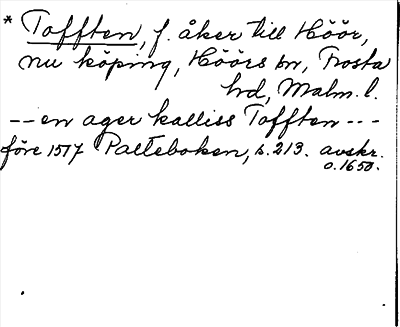 * Tofften, f. åker till Höör,
nu köping, Höörs sn, Frosta
hd, Malm. l.
-- en ager kalliss Tofften ---
före 1517 Palteboken, s. 213. avskr.
o. 1650.